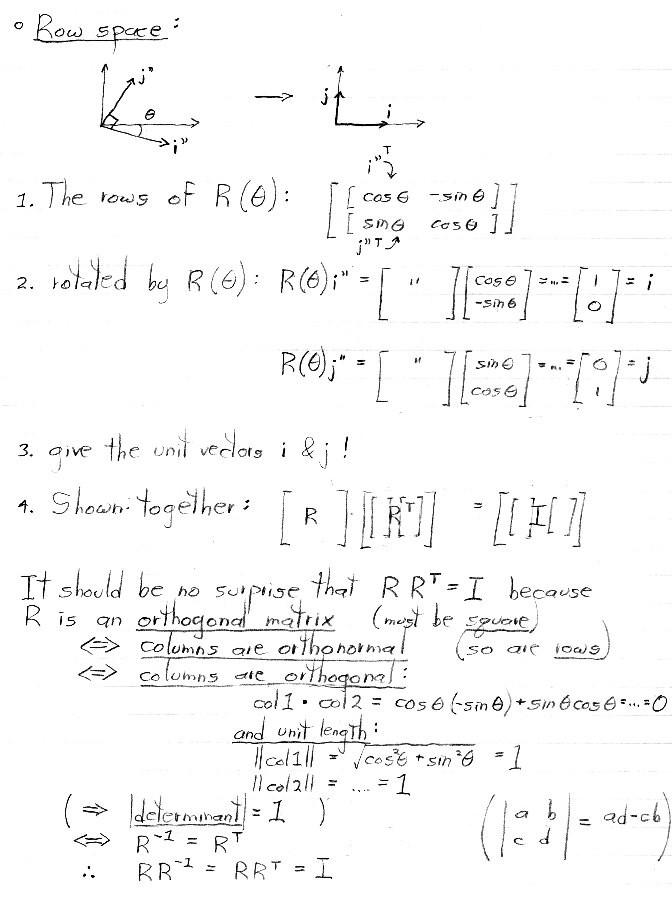 ° Row space:
j"
θ
i"
→
j
i
i"T
1. The rows of R(θ): [[cosθ -sinθ]
[sinθ cosθ]]
j"T
2. rotated by R(θ): R(θ)i" = [ " ][cosθ -sinθ] = ... = [1 0] = i
R(θ)j" = [ " ][sinθ cosθ] = ... = [0 1] = j
3. give the unit vectors i & j!
4. Shown together: [R]·[[RT]] = [[I[]]
It should be no surprise that R Rᵀ = I because
R is an orthogonal matrix (must be square)
⇔ columns are orthonormal (so are rows)
⇔ columns are orthogonal:
col1 · col2 = cosθ(-sinθ)+sinθcosθ=...=0
and unit length:
||col1|| = √cos²θ + sin²θ = 1
||col2|| = .... = 1
(⇒ |determinant| = 1 )
(|a b
c d| = ad-cb)
⇔ R⁻¹ = Rᵀ
∴ RR⁻¹ = RRᵀ = I